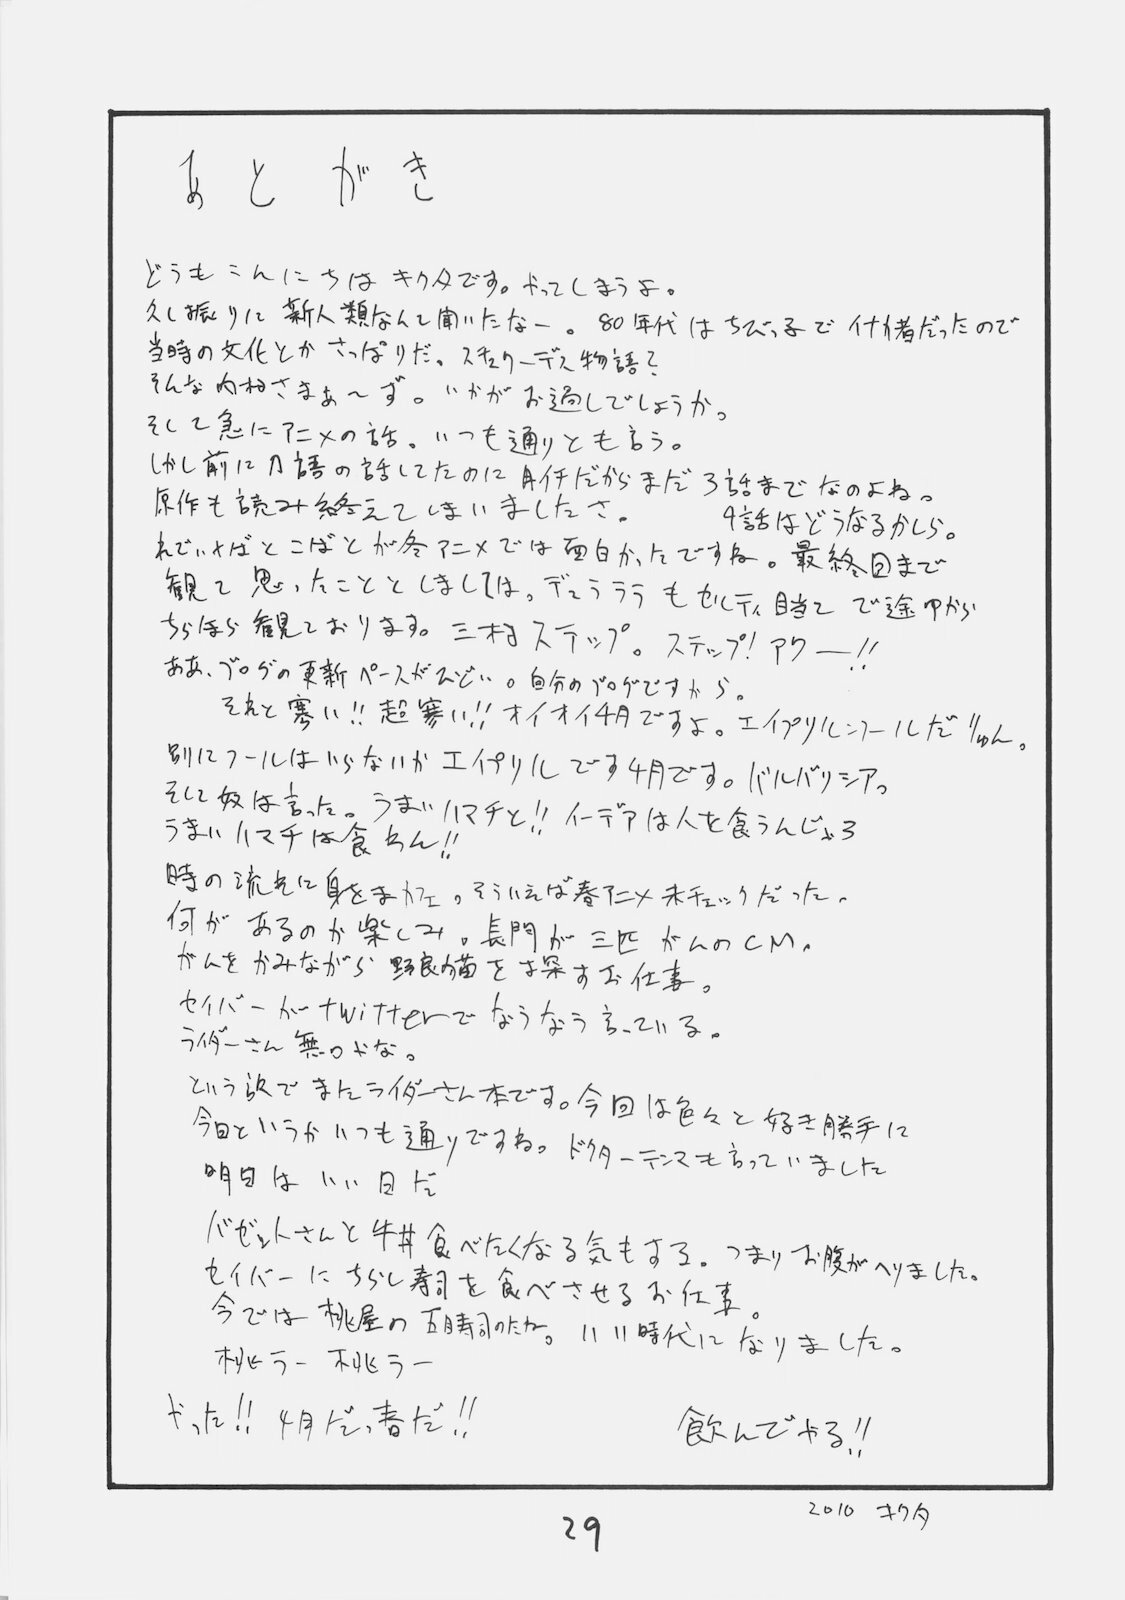 あとがき
どうもこんにちはキクタです。やってしまうよ。
久し振りに新人類なんて聞いたなー。80年代はちびっ子でイナカ者だったので
当時の文化とかさっぱりだ。スチュワーデス物語?
そんな内村さまぁ〜ず。いかがお過しでしょうか。
そして急にアニメの話。いつも通りとも言う。
しかし前に刀語の話してたのに月イチだからまだ3話までなのよね。
原作も読み終えてしまいましたさ。
4話はどうなるかしら。
れでぃ×ばとこばとが冬アニメでは面白かったですね。最終回まで
観て思ったこととしましては。デュラララもセルティ目当てで途中から
ちらほら観ております。三村ステップ。ステップ!アウー!!
ああ、ブログの更新ペースがひどい。自分のブログですから。
それと寒い!!超寒い!!オイオイ4月ですよ。エイプリルンフールだりゅん。
別にフールはいらないがエイプリルです4月です。バルバリシア。
そして奴は言った。うまいハマチと!!イーデアは人を食うんじゃろ
うまいハマチは食わん!!
時の流れに身をまカフェ。そういえば春アニメ未チェックだった。
何があるのか楽しみ。長門が三匹がんのCM。
がんをかみながら野良猫を探すお仕事。
セイバーがtwitterでなうなう言っている。
ライダーさん無口やな。
という訳でまたライダーさん本です。今回は色々と好き勝手に
今日というかいつも通りですね。ドクターテンマも言っていました
明日はいい日だ
バゼットさんと牛丼食べたくなる気もする。つまりお腹がへりました。
セイバーにちらし寿司を食べさせるお仕事。
今では桃屋の五目寿司のたね。いい時代になりました。
桃ラー 桃ラー
やった!!4月だっ春だ!!
飲んでやる!!
2010 キクタ
29